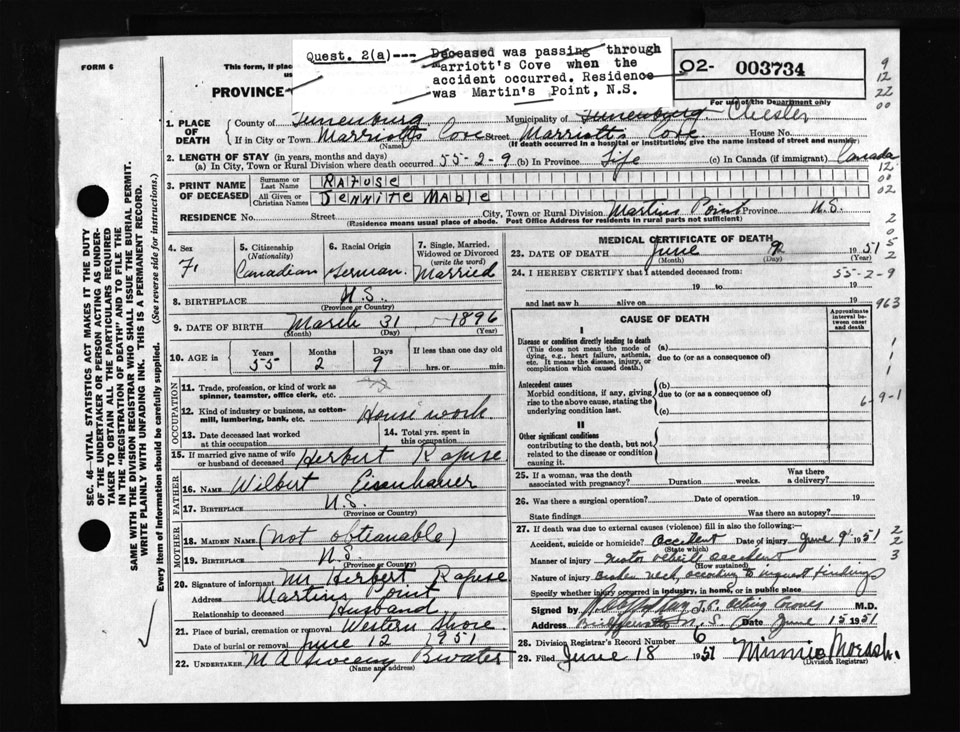 FORM 6
This form, if place
us
PROVINCE
Quest. 2(a)--- Deceased was passing through
Marriott's Cove when the
accident occurred. Residence
was Martin's Point, N.S.
02- 003734
For use of the Department only
9
12
22
00
1. PLACE OF DEATH
County of Lunenburg Municipality of Lunenburg Chester
If in City or Town Marriotts Cove Street Marriotts Cove House No.
(Name) (If death occurred in a hospital or institution, give name instead of street and number)
2. LENGTH OF STAY (in years, months and days)
(a) In City, Town or Rural Division where death occurred 55-2-9 (b) In Province Life (c) In Canada (if immigrant) Canada
12
00
02
3. PRINT NAME OF DECEASED
Surname or Last Name Rafuse
All Given or Christian Names Jennite Mable
RESIDENCE No. Street City, Town or Rural Division Martins Point Province N.S.
(Residence means usual place of abode. Post Office Address for residents in rural parts not sufficient)
2
0
5
2
4. Sex F.
5. Citizenship (Nationality) Canadian
6. Racial Origin German.
7. Single, Married, Widowed or Divorced (write the word) Married
8. BIRTHPLACE N.S.
(Province or Country)
9. DATE OF BIRTH March 31 - 1896
(Month) (Day) (Year)
10. AGE in Years 55 Months 2 Days 9 If less than one day old
hrs. or min.
OCCUPATION
11. Trade, profession, or kind of work as
spinner, teamster, office clerk, etc.
12. Kind of industry or business, as cotton-
mill, lumbering, bank, etc. House work.
13. Date deceased last worked
at this occupation
14. Total yrs. spent in
this occupation
15. If married give name of wife
or husband of deceased Herbert Rafuse
FATHER
16. NAME Wilbert Eisenhauer
17. BIRTHPLACE N.S.
(Province or Country)
MOTHER
18. MAIDEN NAME (not obtianable)
19. BIRTHPLACE N.S.
(Province or Country)
20. Signature of informant Mr Herbert Rafuse
Address Martins Point
Relationship to deceased Husband
21. Place of burial, cremation or removal Western Shore
Date of burial or removal June 12 1951
22. UNDERTAKER M A Sweeny Bwater
(Name and address)
MEDICAL CERTIFICATE OF DEATH
23. DATE OF DEATH June 9 1951
(Month) (Day)
24. I HEREBY CERTIFY that I attended deceased from:
55-2-9
19 to 19
and last saw h alive on 19
963
CAUSE OF DEATH
Approximate interval between onset and death
I
Disease or condition directly leading to death
(This does not mean the mode of
dying, e.g., heart failure, asthenia,
etc. It means the disease, injury, or
complication which caused death.)
(a)
due to (or as a consequence of)
Antecedent causes
Morbid conditions, if any, giving
rise to the above cause, stating the
underlying condition last.
(b)
due to (or as a consequence of)
(c)
II
Other significant conditions
contributing to the death, but not
related to the disease or condition
causing it.
1
1
1
6-9-1
25. If a woman, was the death
associated with pregnancy? Duration weeks. Was there a delivery?
26. Was there a surgical operation? Date of operation 19
State findings Was there an autopsy?
27. If death was due to external causes (violence) fill in also the following:-
Accident, suicide or homicide? Accident Date of injury June 9 1951
(State which)
Manner of injury Motor vehicle accident
(How sustained)
Nature of injury Broken neck, according to inquest findings
Specify whether injury occurred in industry, in home, or in public place
2
2
3
Signed by J.P. Acting Coroner M.D.
Address Bridgewater N.S. Date June 15 1951
28. Division Registrar's Record Number 6
29. Filed June 18 1951 Minnie
(Division Registrar)
SEC. 46—VITAL STATISTICS ACT MAKES IT THE DUTY
OF THE UNDERTAKER OR PERSON ACTING AS UNDER-
TAKER TO OBTAIN ALL THE PARTICULARS REQUIRED
IN THE "REGISTRATION OF DEATH" AND TO FILE THE
SAME WITH THE DIVISION REGISTRAR WHO SHALL ISSUE THE BURIAL PERMIT.
WRITE PLAINLY WITH UNFADING INK. THIS IS A PERMANENT RECORD.
Every item of Information should be carefully supplied. (See reverse side for instructions.)